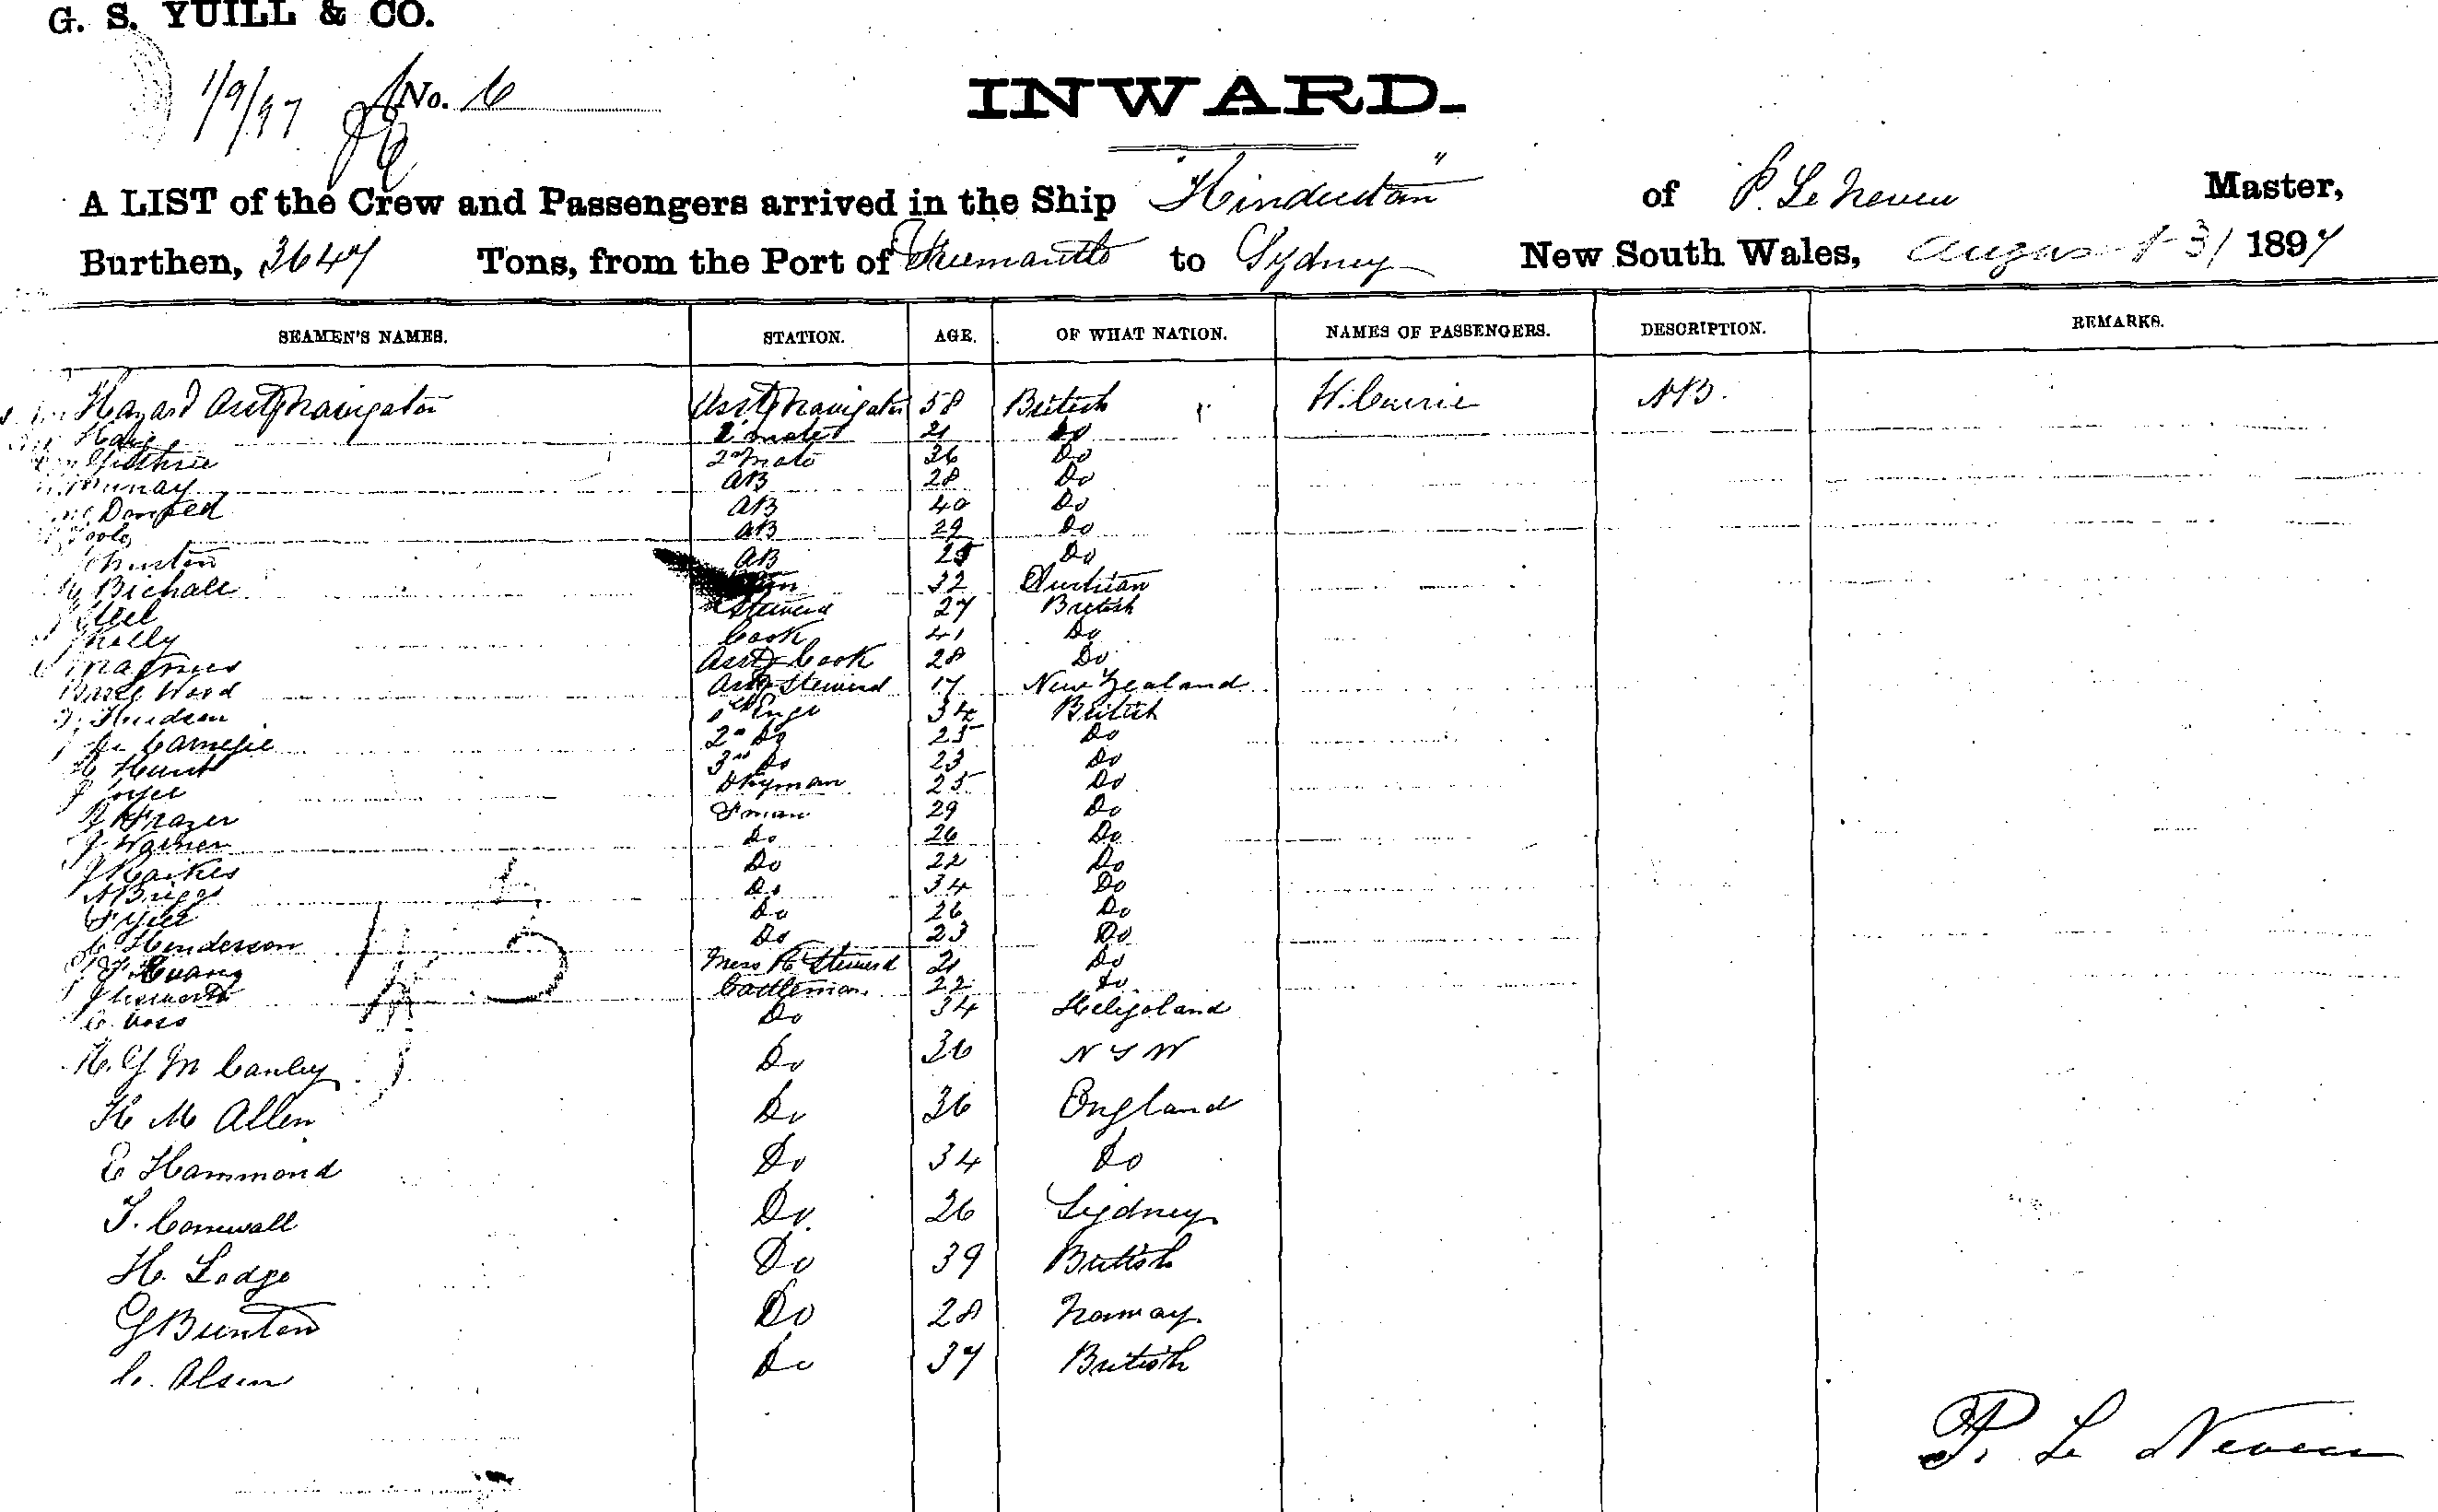 G. S. YUILL & CO.
1/9/97 No. 6
INWARD.
A LIST of the Crew and Passengers arrived in the Ship "Hindustan" of P. Le Neveu Master,
Burthen, 3647 Tons, from the Port of Fremantle to Sydney New South Wales, August 31 1897
SEAMEN'S NAMES. STATION. AGE. OF WHAT NATION. NAMES OF PASSENGERS. DESCRIPTION. REMARKS.
Hazard Asst Navigator Asst Navigator 58 British W. Currie AB.
Haig mate 21 Do
Guthrie 2nd Mate 36 Do
Murray AB 28 Do
AB 40 Do
AB 29 Do
AB 25 Do
Bichale 32 Austrian
Steel Steward 27 British
Kelly Cook 41 Do
Magnus Asst Cook 28 Do
Wood Asst Steward 17 New Zealand
Hudson 1st Engr 34 British
Carnegie 2nd Do 25 Do
Hunt 3rd Do 23 Do
Joyce Dkyman 25 Do
J Frazer Fman 29 Do
J. Warner Do 26 Do
J Raikes Do 22 Do
A Briggs Do 34 Do
Do 26 Do
C Henderson Do 23 Do
Mess R Steward 21 Do
Cattleman 22 Do
C. Voss Do 34 Heligoland
H. G. McCauley Do 36 N S W
H M Allen Do 36 England
E Hammond Do 34 Do
T. Cornwall Do 26 Sydney
H. Lodge Do 39 British
G Bunton Do 28 Norway
C. Olsen Do 37 British
P. Le Neveu